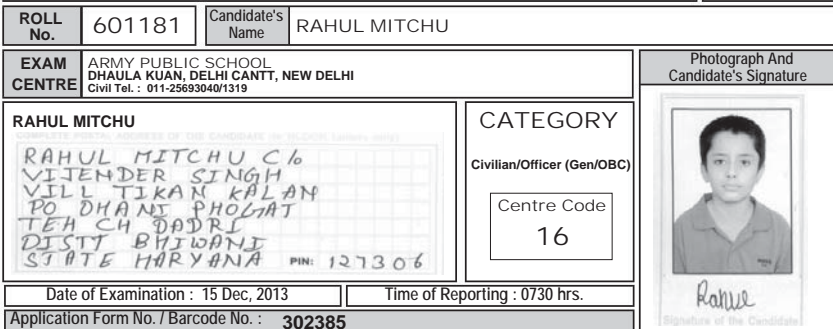 ROLL No.
601181
Candidate's Name
RAHUL MITCHU
EXAM CENTRE
ARMY PUBLIC SCHOOL
DHAULA KUAN, DELHI CANTT, NEW DELHI
Civil Tel. : 011-25693040/1319
Photograph And
Candidate's Signature
RAHUL MITCHU
COMPLETE POSTAL ADDRESS OF THE CANDIDATE
RAHUL MITCHU C/o
VIJENDER SINGH
VILL TIKAN KALAN
PO DHANI PHOGAT
TEH CH DADRI
DISTT BHIWANI
STATE HARYANA PIN: 127306
CATEGORY
Civilian/Officer (Gen/OBC)
Centre Code
16
Rahul
Signature of the Candidate
Date of Examination : 15 Dec, 2013
Time of Reporting : 0730 hrs.
Application Form No. / Barcode No. : 302385